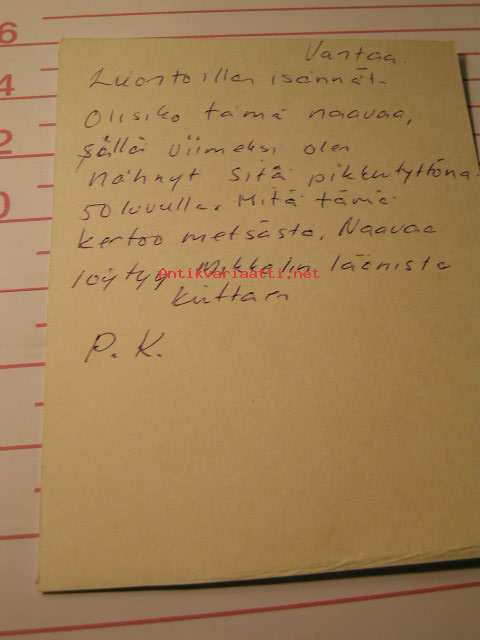 6
4
2
0
Vantaa.
Luontoillan isännät.
Olisiko tämä naavaa,
sällä viimeksi olen
nähnyt sitä pikkutyttönä
50 luvulla. Mitä tämä
kertoo metsästä. Naavaa
löytyy Mikkelin läänistä
Antikvariaatti.net
Kiittäen
P. K.